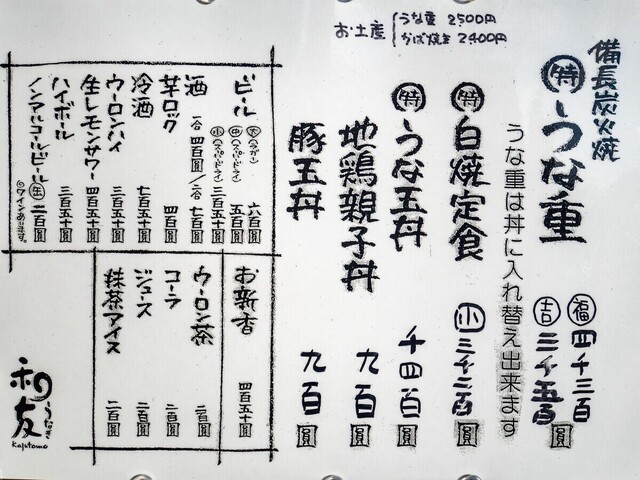 お土産 うな重 2500円
かば焼き 2400円
備長炭火焼
特 うな重
福 四千三百
吉 三千五百 圓
うな重は丼に入れ替え出来ます
特 白焼定食 小 三千二百 圓
特 うな玉丼 千四百 圓
地鶏親子丼 九百 圓
豚玉丼 九百 圓
ビール
大 六百圓
中 (スーパードライ) 五百圓
小 (スーパードライ) 三百五十圓
酒 一合 四百圓/二合 七百圓
芋ロック 四百圓
冷酒 七百五十圓
ウーロンハイ 三百五十圓
生レモンサワー 四百五十圓
ハイボール 三百五十圓
ノンアルコールビール 缶 三百圓
ワインあります。
お新香 四百五十圓
ウーロン茶 二百圓
コーラ 二百圓
ジュース 二百圓
抹茶アイス 二百圓
和友
うなぎ
Kazutomo